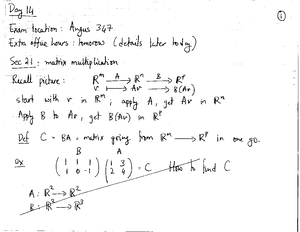 Day 14
①
Exam location : Angus 347
Extra office hours : tomorrow (details later today)
Sec 21 : matrix multiplication
Recall picture : R^m —A→ R^n —B→ R^p
v ↦ Av ↦ B(Av)
start with v in R^m ; apply A, get Av in R^n
Apply B to Av, get B(Av) in R^p
Def C = BA = matrix going from R^m → R^p in one go.
B A
ex (1 1 1 / 1 0 -1) (1 3 / 2 4) = C How to find C
A : R^2 → R^2
B : R^2 → R^3